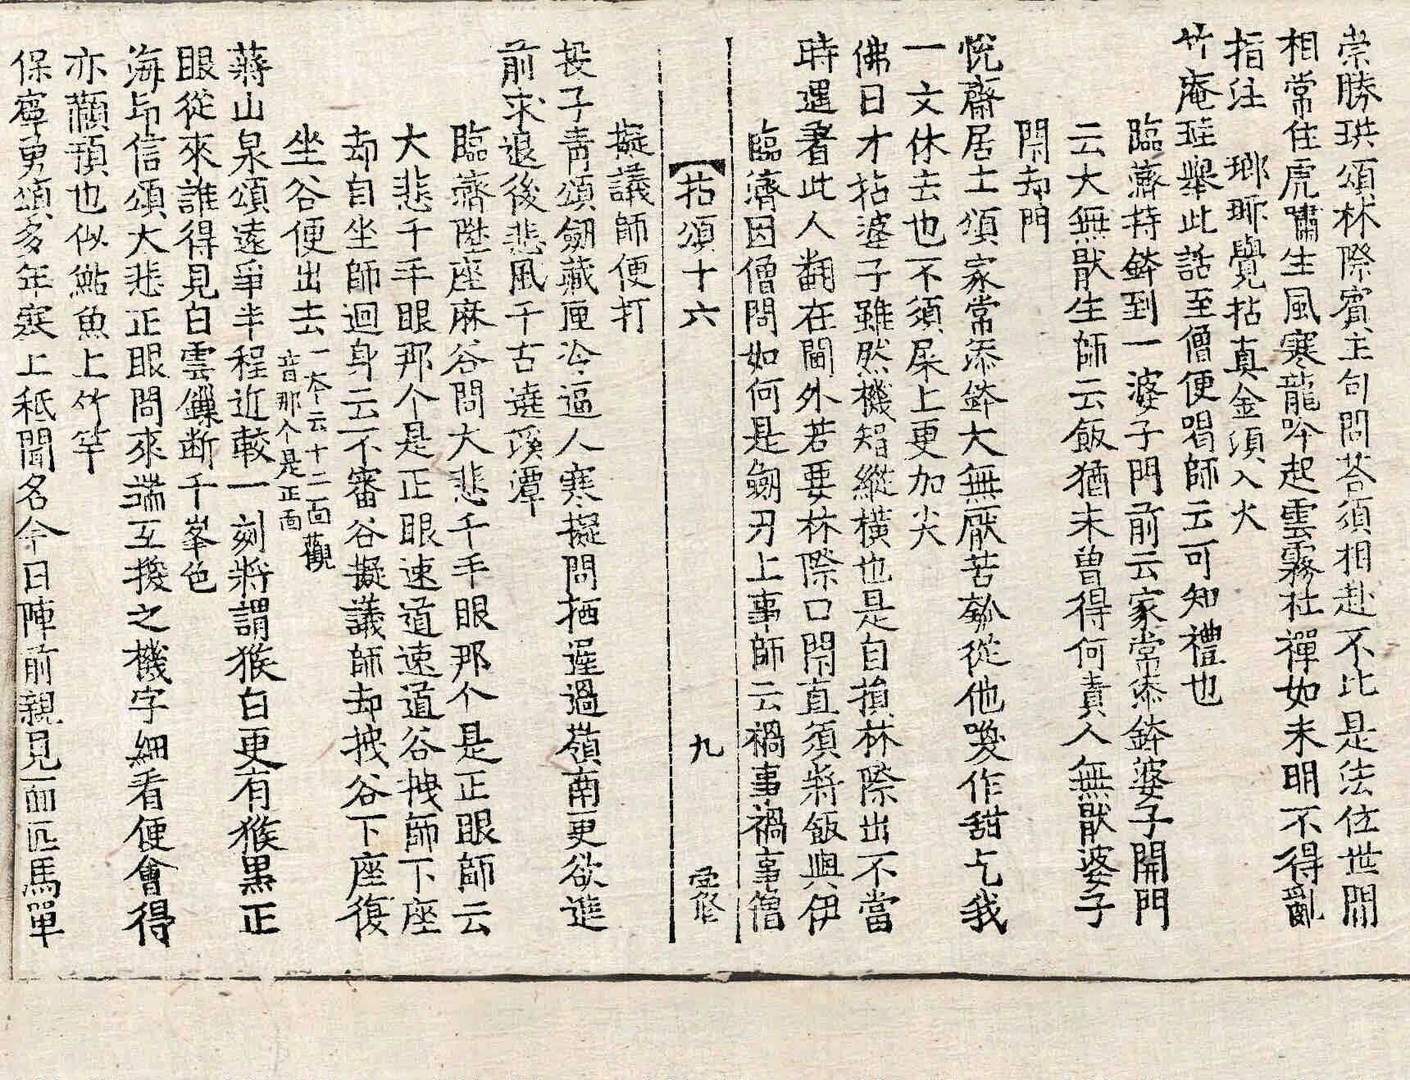 崇勝珙頌林際賓主句問荅須相赴不比是法位世間
相常住虎嘯生風寒龍吟起雲霧社禪如未明不得亂
指注　瑯琊覺拈真金須入火
竹庵珪舉此話至僧便喝師云可知禮也
臨濟持鉢到一婆子門前云家常添鉢婆子開門
云大無厭生師云飯猶未曾得何責人無厭婆子
閇却門
悅齋居士頌家常添鉢大無厭苦瓠從他喚作甜乞我
一文休去也不須屎上更加尖
佛日才拈婆子雖然機智縱橫也是自損林際出不當
時遇著此人翻在閫外若要林際口閇直須將飯與伊
臨濟因僧問如何是劒刃上事師云禍事禍事僧
【拈頌十六　九
擬議師便打
投子靑頌劒藏匣冷逼人寒擬問栖遲過嶺南更欲進
前求退後悲風千古遶溪潭
臨濟陞座麻谷問大悲千手眼那个是正眼師云
大悲千手眼那个是正眼速道速道谷拽師下座
却自坐師迴身云不審谷擬議師却拽谷下座復
坐谷便出去一本云十二面觀
音那个是正面
蔣山泉頌遠爭半程近較一刻將謂猴白更有猴黑正
眼從來誰得見白雲鏁斷千峯色
海印信頌大悲正眼問來端互換之機字細看便會得
亦顢頇也似鮎魚上竹竿
保寧勇頌多年寒上秪聞名今日陣前親見面匹馬單